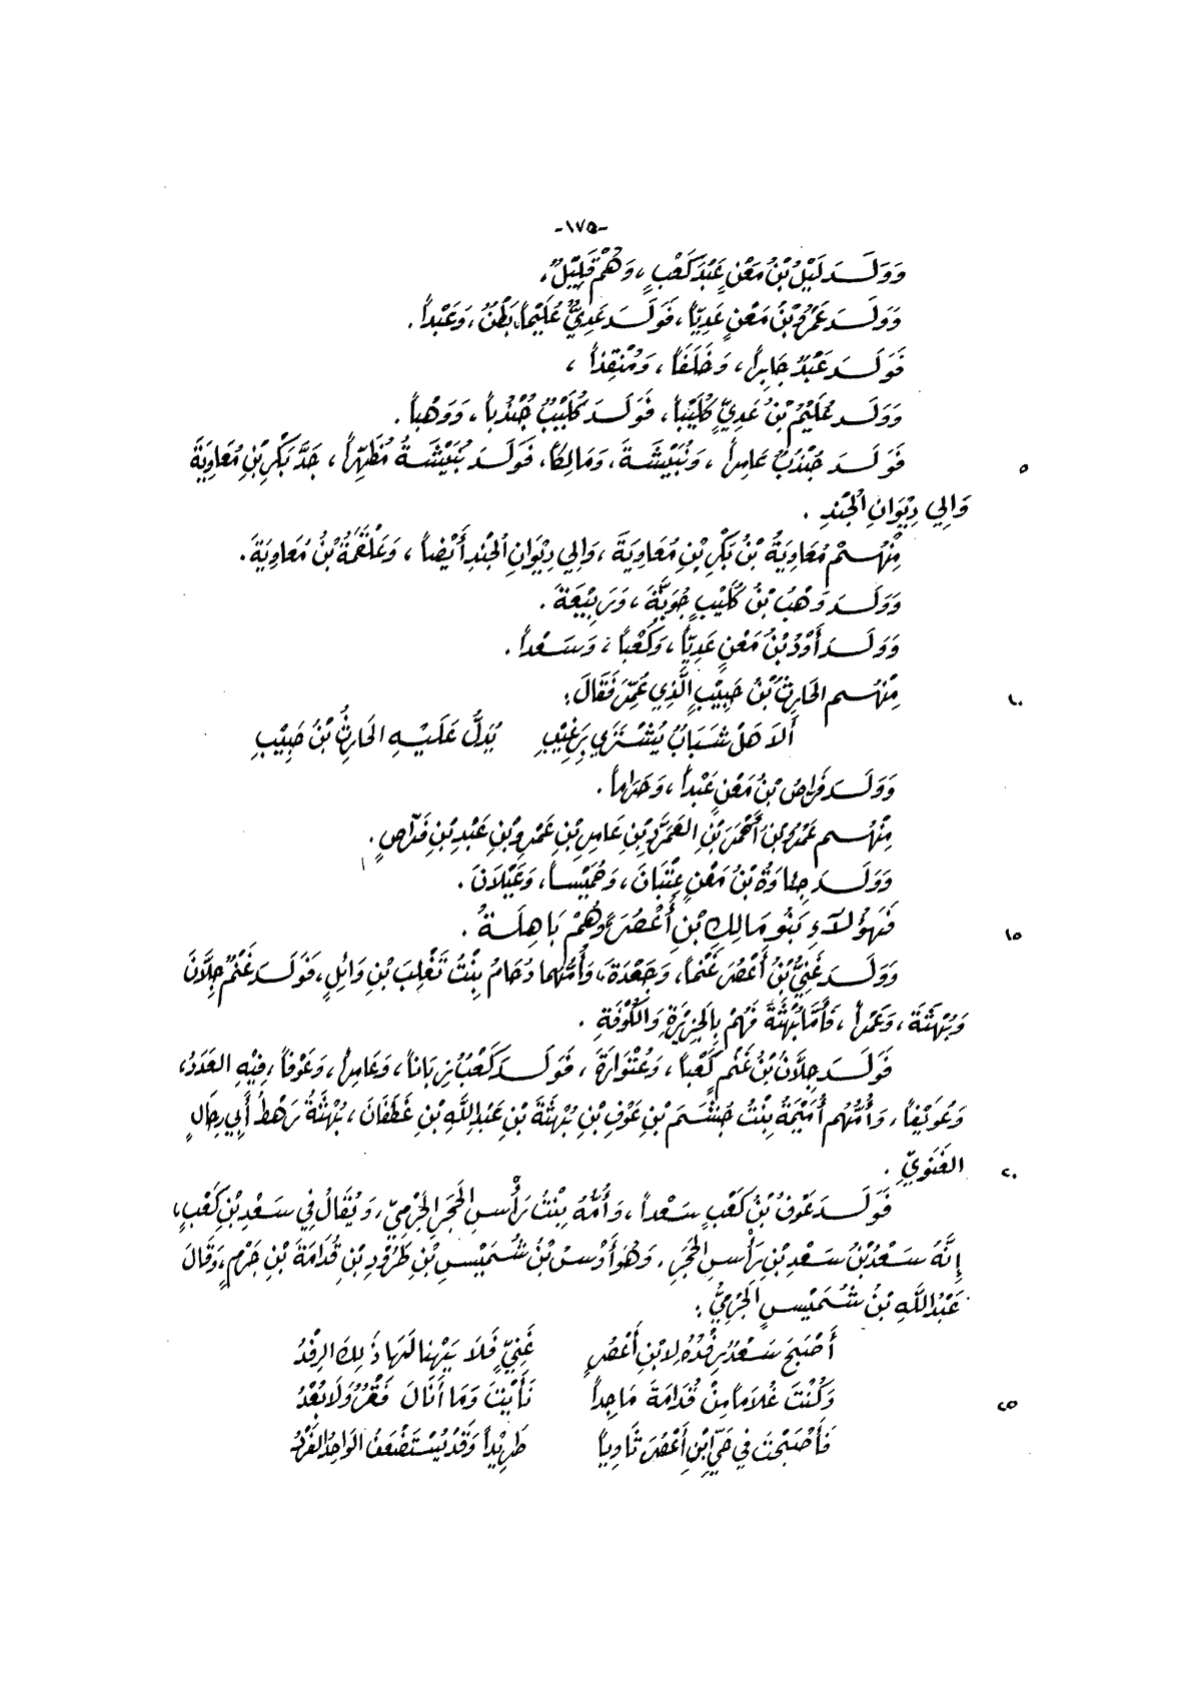 -١٧٥-
وَوَلَـدَ لَيْلُ بْنُ مَعْنٍ عَبْدَ كَعْبٍ، وَهُمْ قَلِيْلٌ،
وَوَلَـدَ عَمْرُو بْنُ مَعْنٍ عَدِيّاً، فَوَلَـدَ عَدِيٌّ عُلَيْماً، بَطْنٌ، وَعَبْداً.
فَوَلَـدَ عَبْدٌ جَابِراً، وَخَلَفاً، وَمُنْقِذاً،
وَوَلَـدَ عُلَيْمُ بْنُ عَدِيٍّ كُلَيْباً، فَوَلَـدَ كُلَيْبٌ جُنْدُباً، وَوَهْباً.
فَوَلَـدَ جُنْدُبٌ عَامِراً، وَنُبَيْشَةَ، وَمَالِكاً، فَوَلَـدَ نُبَيْشَةُ مُظَهِّراً، جَدَّ بَكْرِ بْنِ مُعَاوِيَةَ ٥
وَالِي دِيْوَانِ الْجُنْدِ.
مِنْهُـمْ مُعَاوِيَةُ بْنُ بَكْرِ بْنِ مُعَاوِيَةَ، وَالِي دِيْوَانِ الْجُنْدِ أَيْضاً، وَعَلْقَمَةُ بْنُ مُعَاوِيَةَ.
وَوَلَـدَ وَهْبُ بْنُ كُلَيْبٍ جُؤَيَّةَ، وَرَبِيْعَةَ.
وَوَلَـدَ أَوْدُ بْنُ مَعْنٍ عَدِيّاً، وَكَعْباً، وَسَـعْداً.
مِنْهُـم الحَارِثُ بْنُ حَبِيْبٍ الَّذِي عُمِّرَ فَقَالَ: ١٠
أَلاَ هَلْ شَـبَابٌ يُشْـتَرَى بِرَغِيْبِ يُدَلُّ عَلَيْـهِ الحَارِثُ بْنُ حَبِيْبِ
وَوَلَـدَ فَرَاصُ بْنُ مَعْنٍ عَبْداً، وَحَرَاماً.
مِنْهُـم عَمْرُو بْنُ أَحْمَرَ بْنِ العَمَرَّدِ بْنِ عَامِرِ بْنِ عَمْرِو بْنِ عَبْدِ بْنِ فَرَّاصٍ.
وَوَلَـدَ جِئَاوَةُ بْنُ مَعْنٍ عِتْبَانَ، وَحُمَيْسـاً، وَعَيْلَانَ.
فَهَؤُلَآءِ بَنُو مَالِكِ بْنِ أَعْصُرَ وَهُمْ بَاهِلَـةُ. ١٥
وَوَلَـدَ غَنِيُّ بْنُ أَعْصُرَ غَنْماً، وَجَعْدَةَ، وَأُمُّهُما دُحَامُ بِنْتُ تَغْلِبَ بْنِ وَائِلٍ، فَوَلَـدَ غَنْمٌ جِلَّانَ
وَبُهْثَةَ، وَعَمْراً، فَأَمَّا بُهْثَةُ فَهُمْ بِالجَزِيْرَةِ وَالكُوْفَةِ.
فَوَلَـدَ جِلَّانُ بْنُ غَنْمٍ كَعْباً، وَعُتْوَارَةَ، فَوَلَـدَ كَعْبٌ زِبَاناً، وَعَامِراً، وَعَوْفاً، فِيْهِ العَدَدُ،
وَعُوَيْفاً، وَأُمُّهُم أُمَيْمَةُ بِنْتُ جُشَـمَ بْنِ عَوْفِ بْنِ بُهْثَةَ بْنِ عَبْدِ اللَّهِ بْنِ غَطَفَانَ، بُهْثَةُ رَهْطُ أَبِي رِحَالٍ
الغَنَوِيِّ. ٢٠
فَوَلَـدَ عَوْفُ بْنُ كَعْبٍ سَـعْداً، وَأُمُّهُ بِنْتُ رَأْسِ الحَجَرِ الجَرْمِيِّ، وَيُقَالُ فِي سَـعْدِ بْنِ كَعْبٍ،
إِنَّهُ سَـعْدُ بْنُ سَـعْدِ بْنِ رَأْسِ الحَجَرِ، وَهُوَ أَوْسُ بْنُ شُـمَيْسِ بْنِ طَرُوْدِ بْنِ قُدَامَةَ بْنِ جَرْمٍ، وَقَالَ
عَبْدُ اللَّهِ بْنُ شُـمَيْسٍ الجَرْمِيُّ:
أَصْبَحَ سَـعْدٌ رِفْدُهُ لِابْنِ أَعْصُرٍ غَنِيٍّ فَلَا يَهْنَا لَهَا ذَلِكَ الرِّفْدُ
وَكُنْتَ غُلَاماً مِنْ قُدَامَةَ مَاجِداً نَأَيْتَ وَمَا أَنَالَ فَقْرٌ وَلَا بُعْدُ ٢٥
فَأَصْبَحْتَ فِي حَيِّ ابْنِ أَعْصُرَ ثَاوِياً طَرِيْداً وَقَدْ يُسْـتَضْعَفُ الوَاحِدُ الفَرْدُ